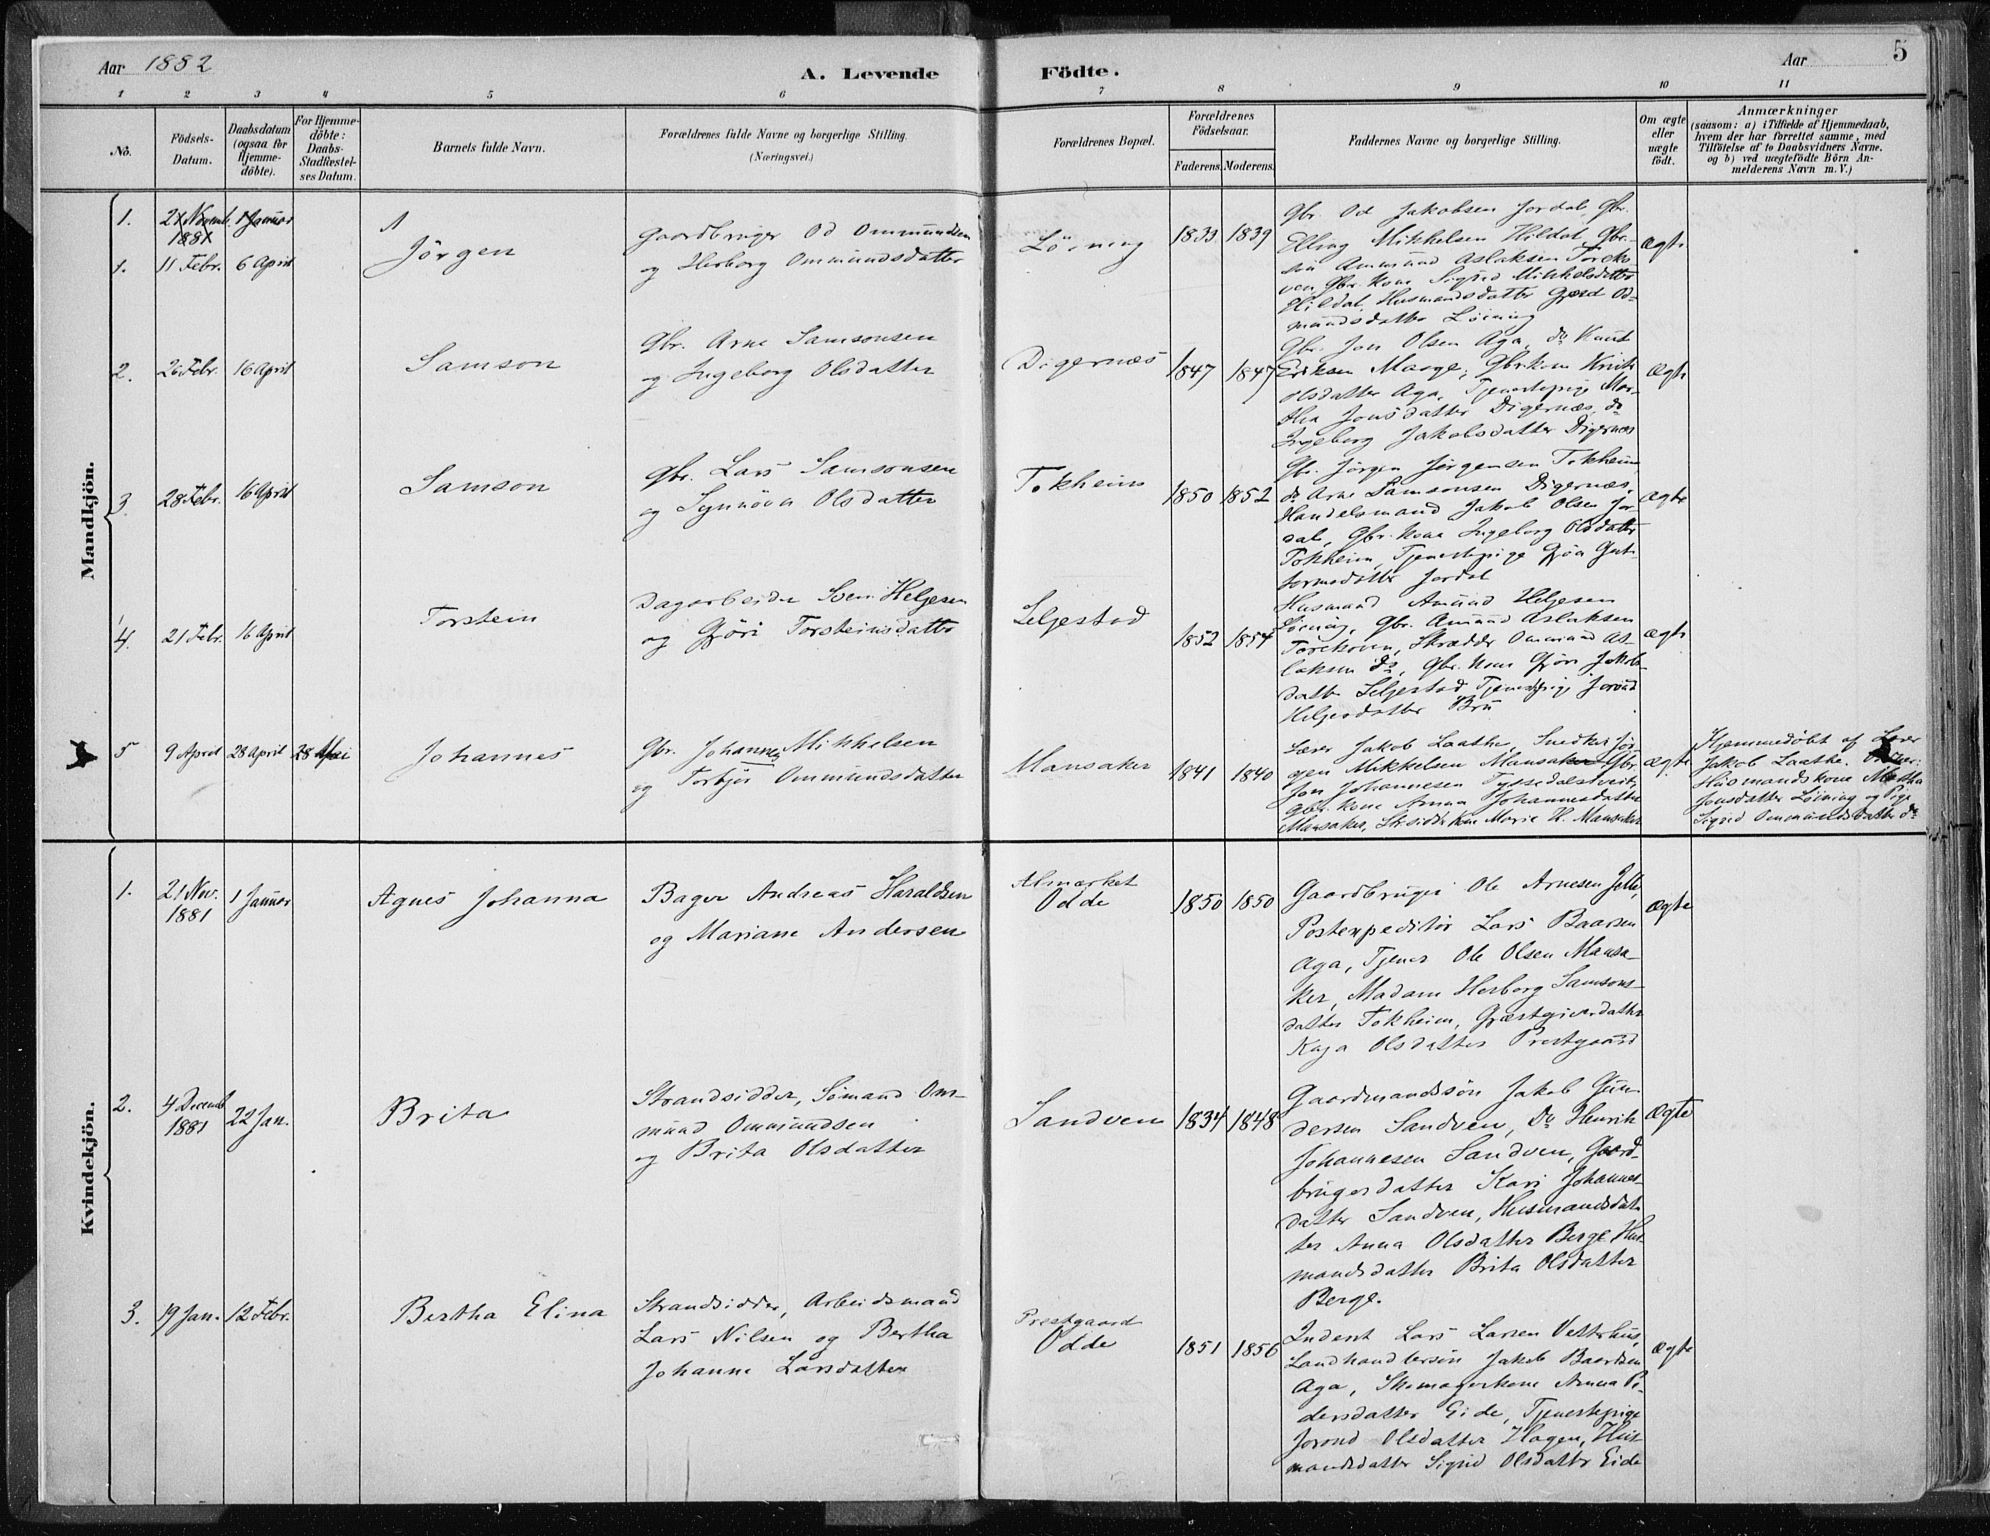 Aar 1882
A. Levende
Födte.
Aar
5
1 2 3 4 5 6 7 8 9 10 11
No.
Födsels-Datum.
Daabsdatum (ogsaa for Hjemme-döbte).
For Hjemme-döbte: Daabs-Stadfæstel-ses Datum.
Barnets fulde Navn.
Forældrenes fulde Navne og borgerlige Stilling.
(Næringsvei.)
Forældrenes Bopæl.
Forældrenes Födselsaar.
Faderens. Moderens.
Faddernes Navne og borgerlige Stilling.
Om ægte eller uægte födt.
Anmærkninger
(saasom: a) i Tilfælde af Hjemmedaab,
hvem der har forrettet samme, med
Tilföielse af to Daabsvidners Navne.
og b) ved uægtefödte Börn An-
melderens Navn m. V.)
Mandkjön.
1. 21 Novemb. 1881 1 Januar A
1. 11 Febr. 6 April
Jörgen
Gaardbruger Od Ommundsen
og Herborg Ommundsdatter
Löining
1833 1839
Gbr. Od Jakobsen Jordal, Gbr.
Elling Mikkelsen Hildal, Gbr.
Ammund Aslaksen
Gbr. Kone Sigrid Mikkelsdatter
Hildal, Husmandsdatter Gjerd Od-
mundsdatter Löining
Ægte
2. 26 Febr. 16 April
Samson
Gbr. Arne Samsonsen
og Ingeborg Olsdatter
Digernæs
1847 1847
Gbr. Jon Olsen Aga, do Knut
Eriksen Maage, Gbrkone
Olsdatter Aga, Tjenestepige Mar-
tha Jonsdatter Digernæs, do
Ingeborg Jakobsdatter Digernæs
Ægte
3. 28 Febr. 16 April
Samson
Gbr. Lars Samsonsen
og Synnöva Olsdatter
Tokheim
1850 1852
Gbr. Jörgen Jörgensen Tokheim
do Arne Samsonsen Digernæs,
Handelsmand Jakob Olsen Jor-
dal, Gbr. Kone Ingeborg Olsdatter
Tokheim, Tjenestepige Gjöa Gut-
tormsdatter Jordal
Ægte
4. 21 Febr. 16 April
Torstein
Dagarbeider Svein Helgesen
og Gjöri Torsteinsdatter
Seljestad
1852 1854
Husmand Amund Helgesen
Löining, Gbr. Amund Aslaksen
Skrædder Ommund As-
laksen do, Gbr. Kone Gjöri Jakobs-
datter Seljestad, Tjenestepige Jorund
Helgesdatter Bru
Ægte
5 9 April 28 April 28 Mai
Johannes
Gbr. Johannes Mikkelsen
og Torbjör Ommundsdatter
Mansaker
1841 1840
Lærer Jakob Laathe, Snedker Jör-
gen Mikkelsen Mansaker, Gbr.
Jon Johannesen Tyssedalstveit,
Gbr. Kone Anna Johannesdatter
Mansaker, Strsidderkone Marie H. Mansaker
Ægte
Hjemmedöbt af Lærer
Jakob Laathe.
Husmandskone Martha
Jonsdatter Löining og Pige
Sigrid Ommundsdatter do
Kvindekjön.
1. 21 Nov. 1881 1 Januar
Agnes Johanna
Bager Andreas Haraldsen
og Mariane Andersen
Almerket
Odde
1850 1850
Gaardbruger Ole Arnesen Jelle,
Postexpeditör Lars Baarsen
Aga, Tjener Ole Olsen Mansa-
ker, Madam Herborg Samsons-
datter Tokheim, Gjæstgiverdatter
Kaja Olsdatter Prestgaard
Ægte
2. 4 Decemb 1881 22 Jan.
Brita
Strandsidder, Sömand Om-
mund Ommundsen
og Brita Olsdatter
Sandven
1834 1848
Gaardmandssön Jakob Gun-
dersen Sandven, Do Henrik
Johannesen Sandven, Gaard-
brugerdatter Kari Johannes-
datter Sandven, Husmandsdat-
ter Anna Olsdatter Berge, Hus-
mandsdatter Brita Olsdatter
Berge.
Ægte
3. 19 Jan. 12 Febr.
Bertha Elina
Strandsidder, Arbeidsmand
Lars Nilsen og Bertha
Johanne Larsdatter
Prestgaard
Odde
1851 1856
Inderst Lars Larsen Vetrhus,
Landhandlersön Jakob Baardsen
Aga, Skomagerkone Anna Pe-
dersdatter Eide, Tjenestepige
Jorond Olsdatter Hagen, Hus-
mandsdatter Sigrid Olsdatter Eide
Ægte